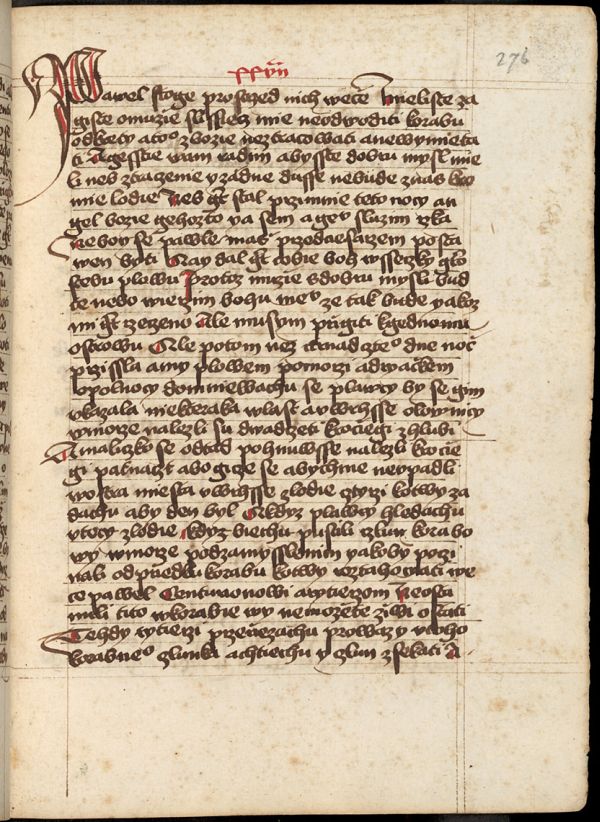 xxvii
276
Pawel stoge prostrzed nich wece Mieliste za
giste o muzie slissiecz mie neodwoditi korabu
od krety a to° zbozie neztracowati a newymieta
ti A gesstie wam radim abysste dobru mysl mie
li neb ztrazenie zzadne dusse nebude z was kro
mie lodie Neb gt stal przi mnie teto nocy an
gel bozie gehozto ya sem a geu° sluzim rzka
Neboy se pawle mas przed ciesarzem posta
wen byti Tray dal gt tobie boh wssecky gto
stebu plowu Protoz muzie s dobru mysli bud
te nebo wierzim bohu me° ze tak bude yakoz
mi gt rzezeno Ale musym prigiti k gednomu
ostrowu Ale potom nez cztnadczte° dne noc
przissla a my plowem po morzi adriackem
o polnocy domniewachu se plawcy by se gim
vkazala niekteraka wlast a vwrhsse olownicy
w morze nalezli su dwadczeti krociegi zhlubi
A maliczko se odtad pohnuwsse nalezli krocie
gi patnaczt a bogicze se abychme nevpadli
w ostra miesta vwrhsse z lodie cztyrzi kotwy za
dachu aby den byl A kdyz plawcy hledachu
vtecy z lodie kdyz biechu pustili czlun korabo
wy w morze pod zamysslenim yakoby poczi
nali od przedku korabu kotwy roztahowati we
ce pawel Centurionowi a rytierzom Neosta
nuli tito w korabie wy nemozete ziwi ostati
Tehdy rytierzi przerzezachu prowazy v toho
korabne° czlunka a chtiechu y czlun zsekati A